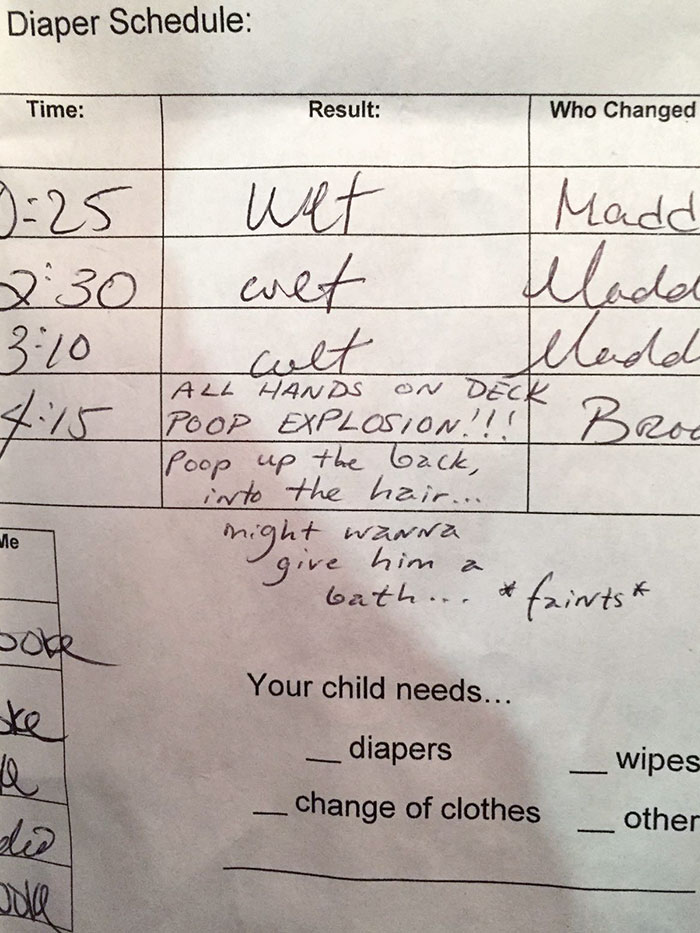 Diaper Schedule:
Time: Result: Who Changed
:25 Wet Madd
2:30 wet Madd
3:10 wet Madd
4:15 ALL HANDS ON DECK
POOP EXPLOSION!!! Broo
Poop up the back,
into the hair...
might wanna
give him a
bath... *faints*
Me
ooke
oke
Your child needs...
__ diapers __ wipes
__ change of clothes __ other
ooke